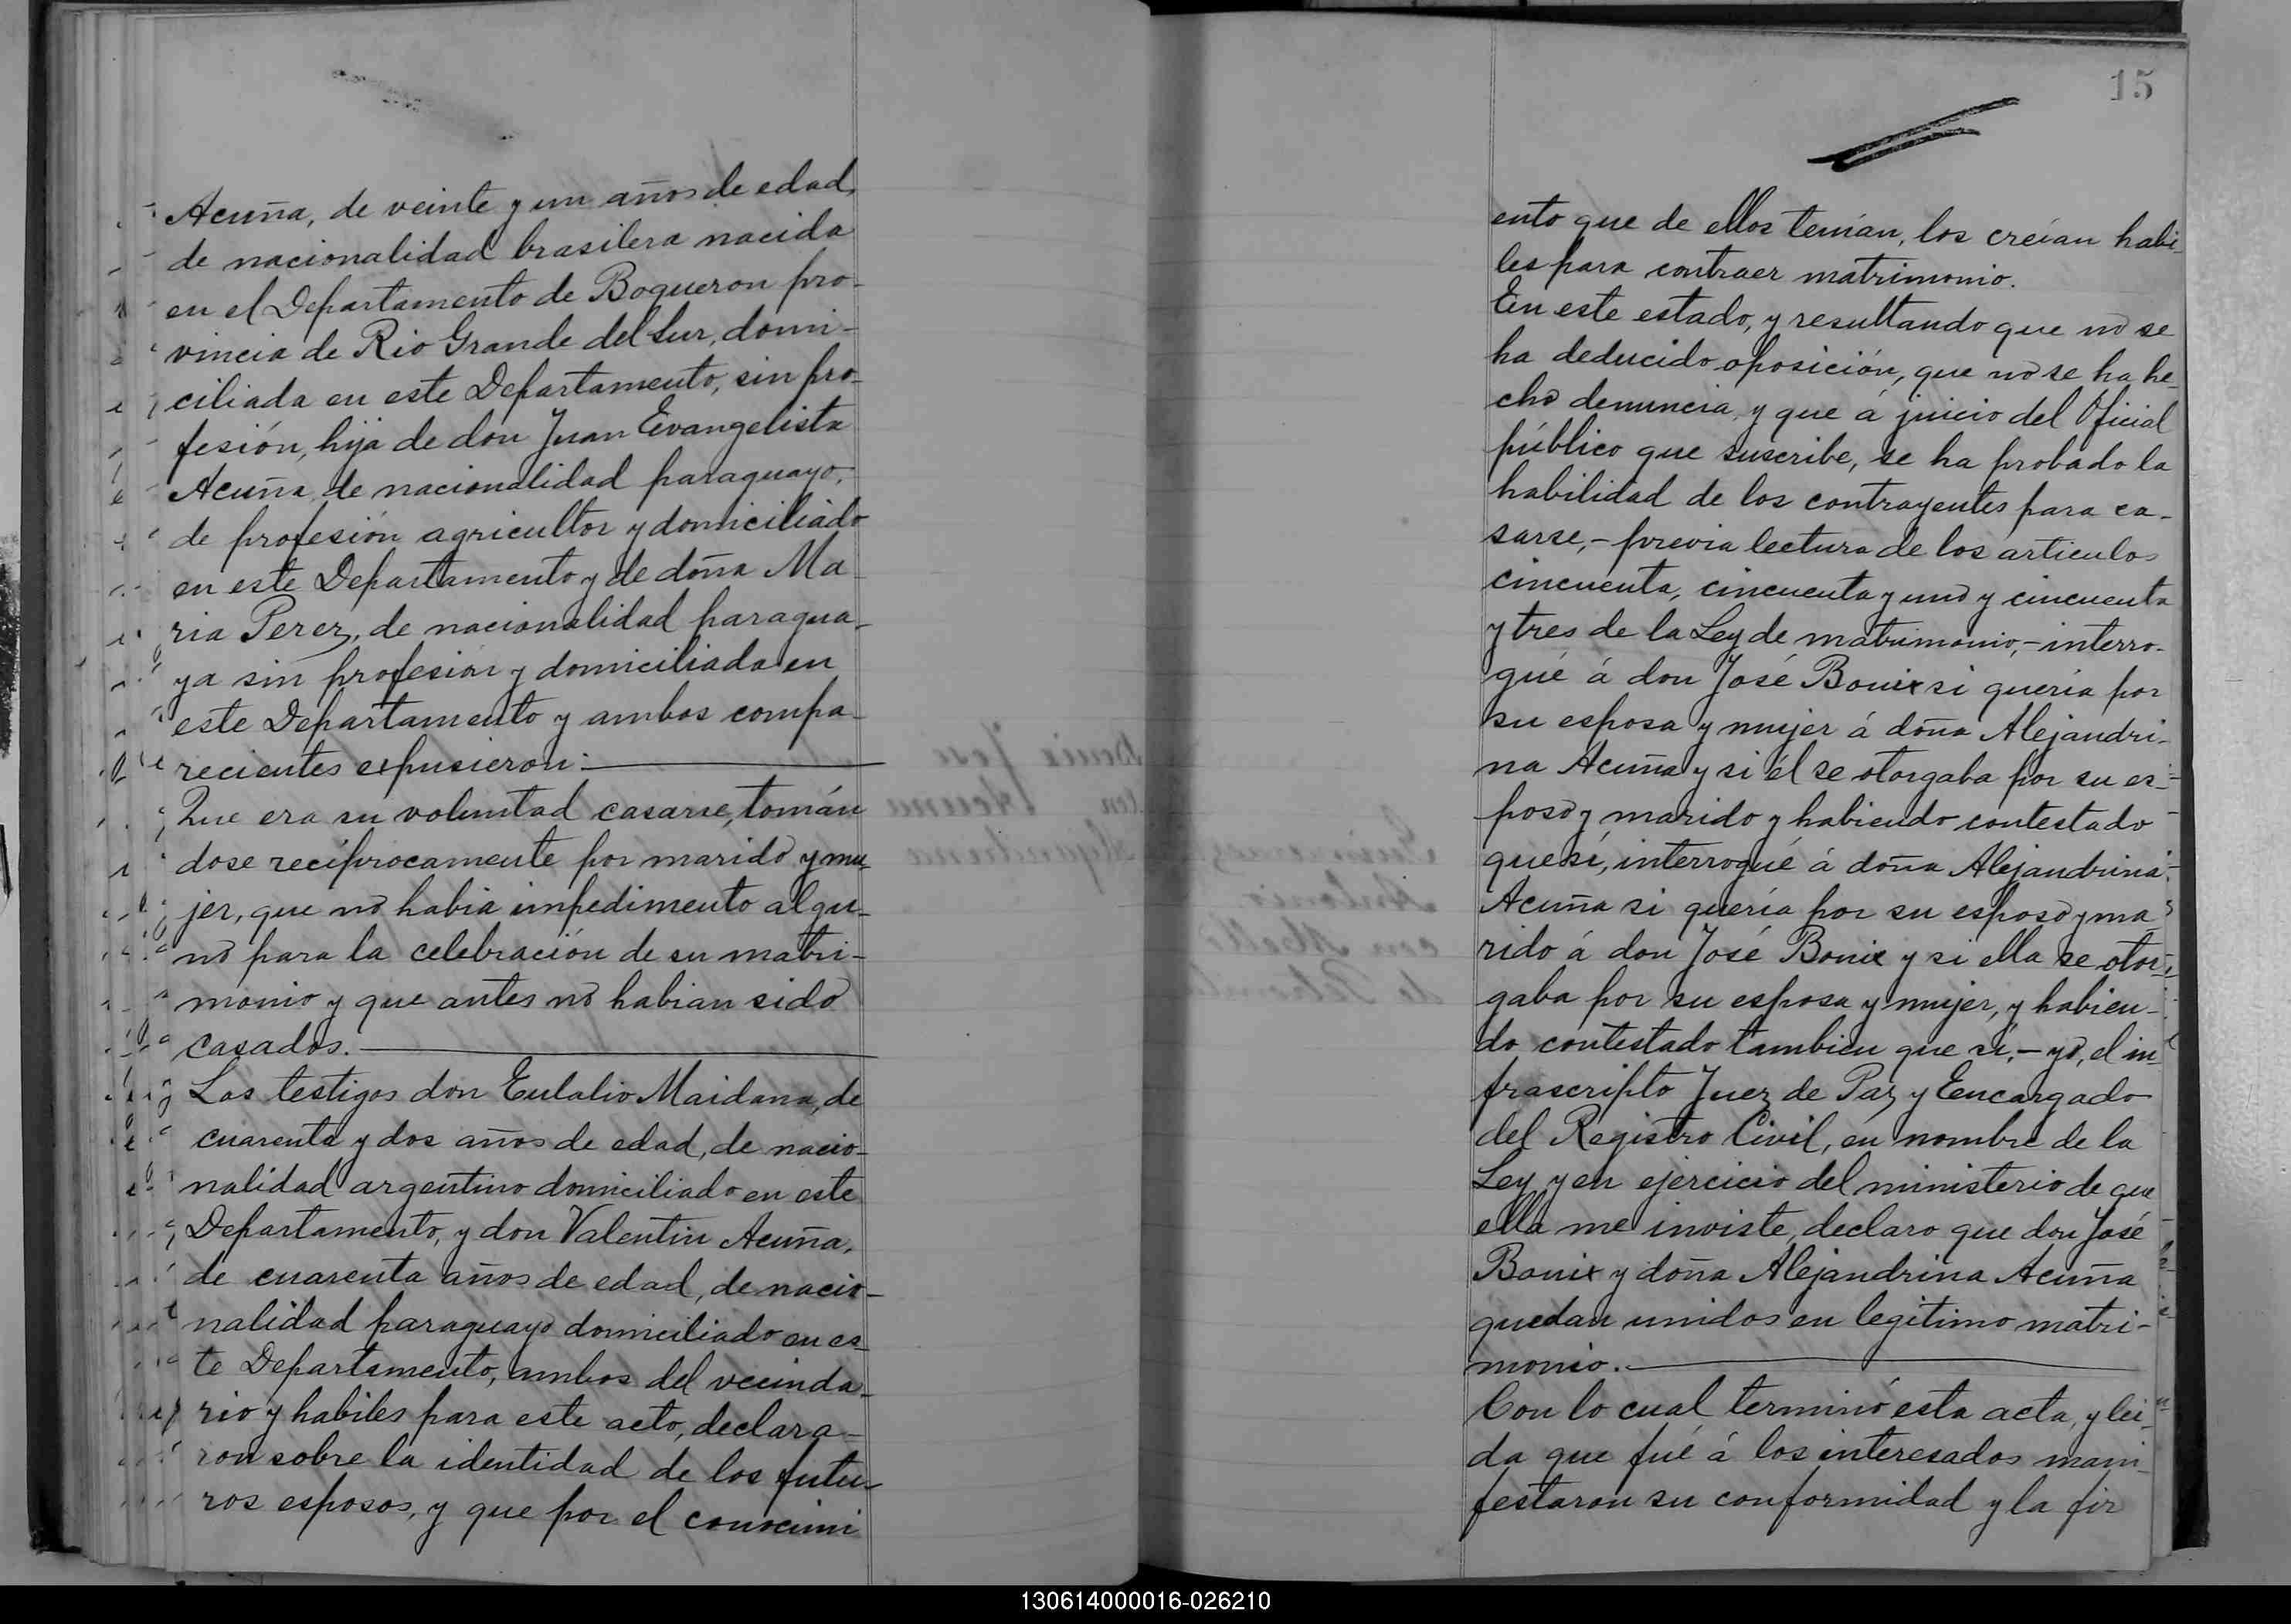 Acuña, de veinte y un años de edad,
de nacionalidad brasilera nacida
en el Departamento de Boqueron pro-
vincia de Rio Grande del Sur, domi-
ciliada en este Departamento, sin pro-
fesión, hija de don Juan Evangelista
Acuña, de nacionalidad paraguayo,
de profesión agricultor y domiciliado
en este Departamento y de doña Ma
ria Perez, de nacionalidad paragua-
ya sin profesión y domiciliada en
este Departamento y ambos compa-
recientes expusieron:
Que era su voluntad casarse, tomán
dose recíprocamente por marido y mu-
jer, que no habia impedimento algu-
no para la celebración de su matri-
monio y que antes no habian sido
casados.
Los testigos don Eulalio Maidana, de
cuarenta y dos años de edad, de nacio-
nalidad argentino domiciliado en este
Departamento, y don Valentin Acuña,
de cuarenta años de edad, de nacio-
nalidad paraguayo domiciliado en es-
te Departamento, ambos del vecinda-
rio y habiles para este acto, declara-
ron sobre la identidad de los futu-
ros esposos, y que por el conocimi
15
ento que de ellos tenían, los creían habi-
les para contraer matrimonio.
En este estado, y resultando que no se
ha deducido oposición, que no se ha he-
cho denuncia, y que á juicio del Oficial
público que suscribe, se ha probado la
habilidad de los contrayentes para ca-
sarse,- previa lectura de los articulos
cincuenta, cincuenta y uno y cincuenta
y tres de la Ley de matrimonio,- interro-
gué á don José Bonix si queria por
su esposa y mujer á doña Alejandri-
na Acuña y si él se otorgaba por su es-
poso y marido y habiendo contestado
que sí, interrogué á doña Alejandrina
Acuña si quería por su esposo y ma
rido á don José Bonix y si ella se otor-
gaba por su esposa y mujer, y habien-
do contestado tambien que sí,- yo, el in-
frascripto Juez de Paz y Eencargado
del Registro Civil, en nombre de la
Ley y en ejercicio del ministerio de que
ella me inviste, declaro que don José
Bonix y doña Alejandrina Acuña
quedan unidos en legitimo matri-
monio.
Con lo cual terminó esta acta, y lei-
da que fué á los interesados mani-
festaron su conformidad y la fir
130614000016-026210